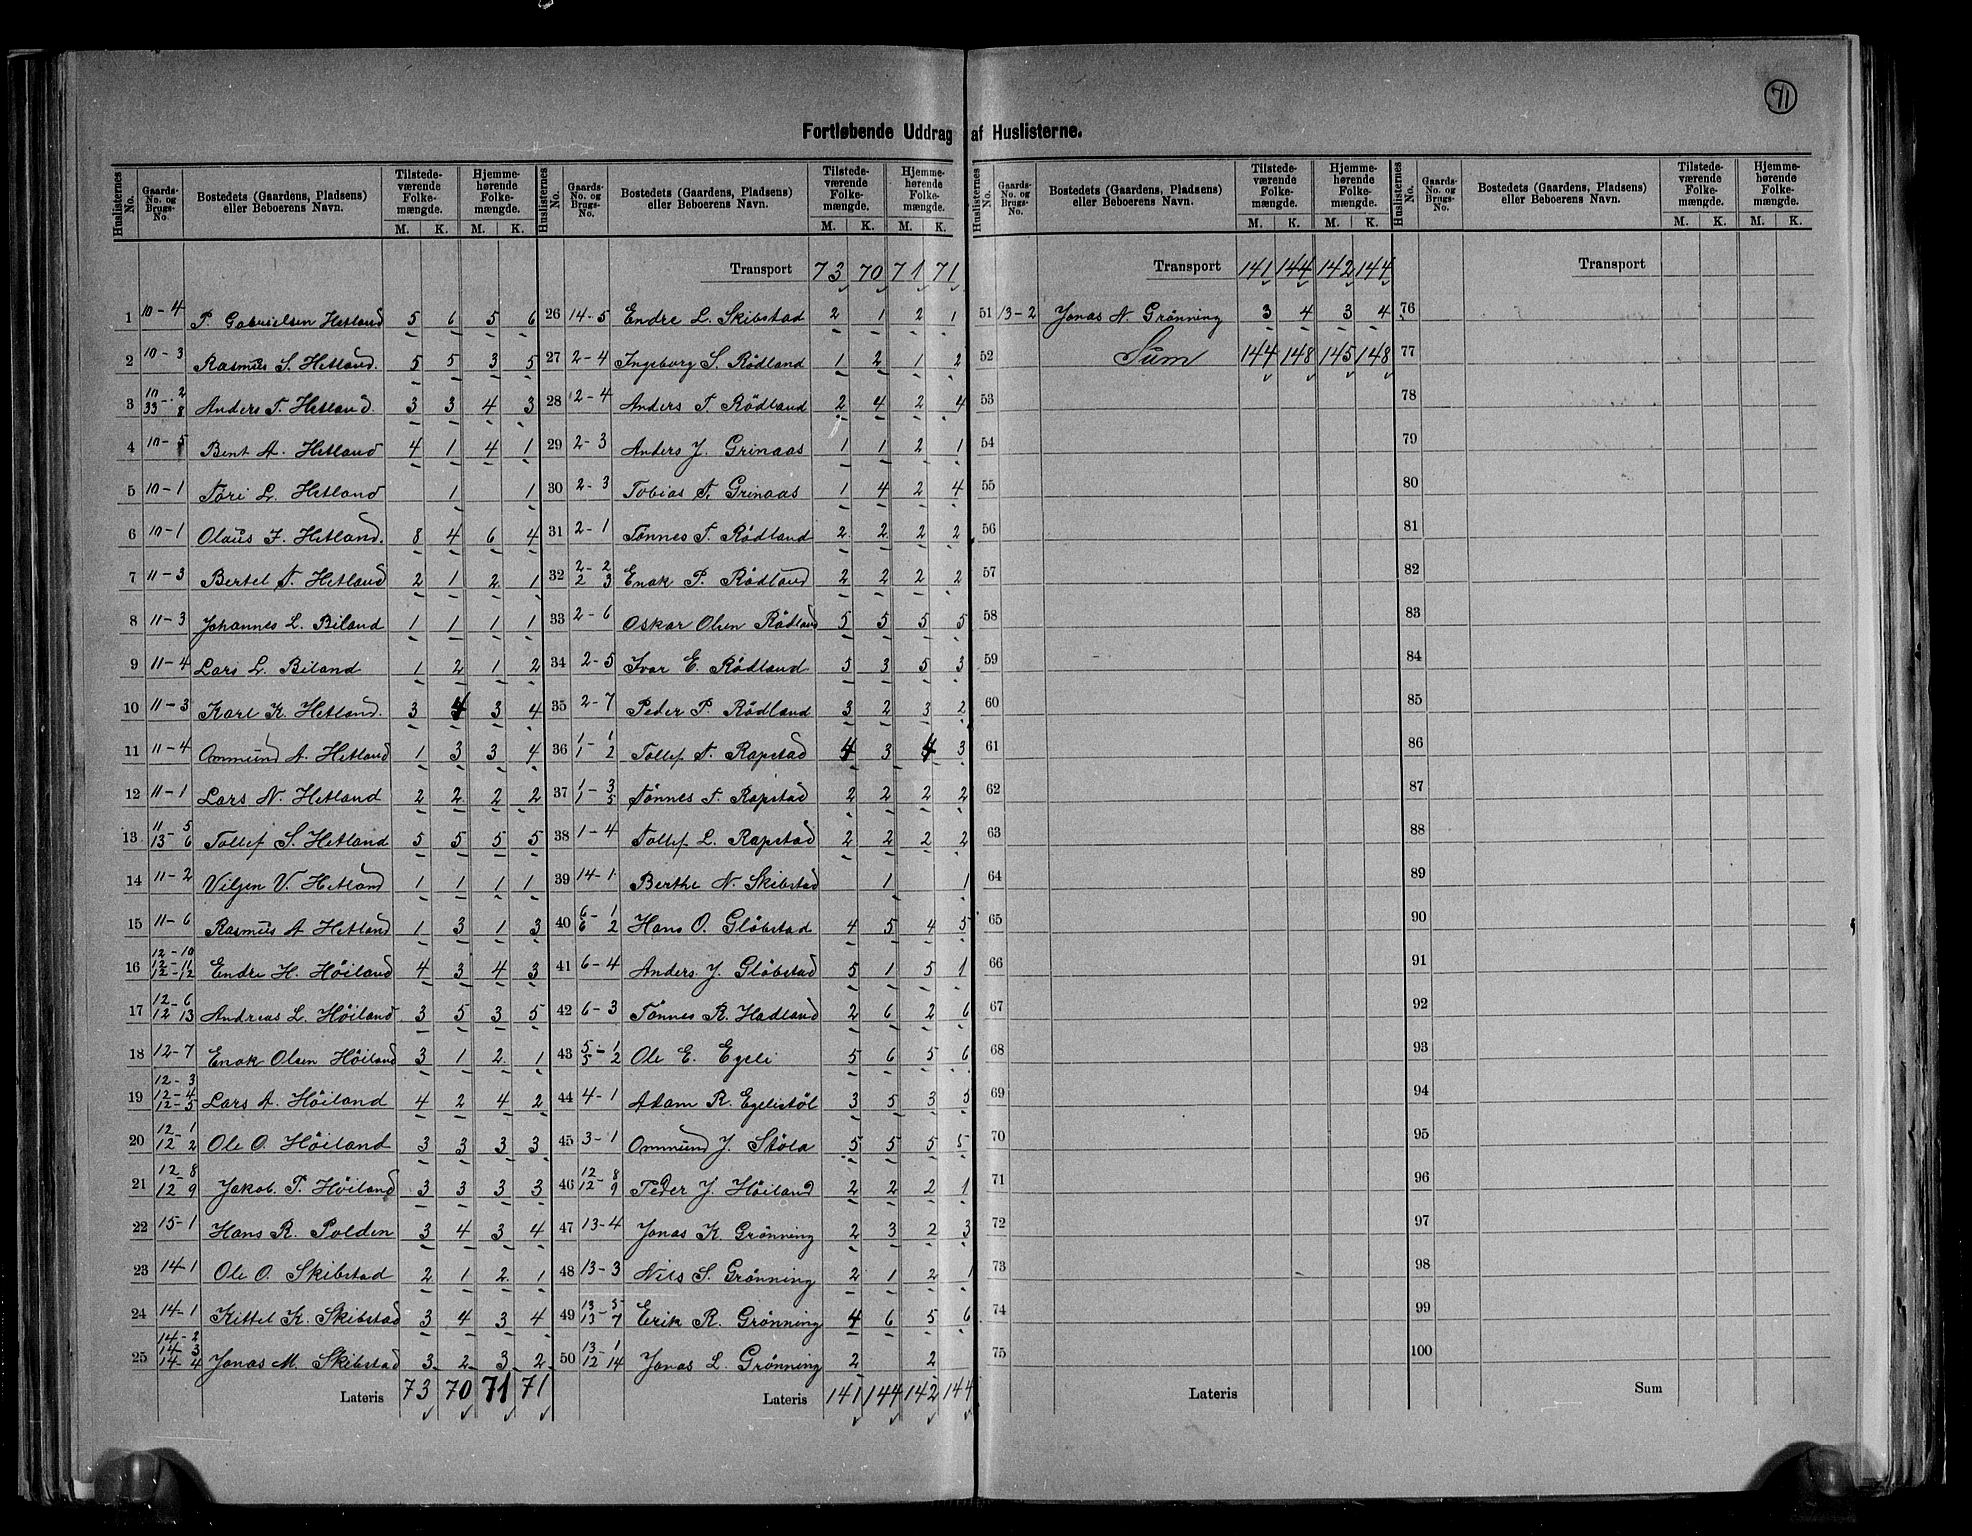 71
Fortløbende Uddrag af Huslisterne.
Huslisternes No. Gaards-No. og Brugs-No. Bostedets (Gaardens, Pladsens) eller Beboerens Navn. Tilstedeværende Folkemængde. M. K. Hjemmehørende Folkemængde. M. K.
1 10-4 P. Gabrielsen Hetland 5 6 5 6
2 10-3 Rasmus S. Hetland. 5 5 3 5
3 10-2 33-8 Anders T. Hetland 3 3 4 3
4 10-5 Bent A. Hetland 4 1 4 1
5 10-1 Töri L. Hetland 1 1
6 10-1 Olaus J. Hetland. 8 4 6 4
7 11-3 Bertel T. Hetland 2 1 2 1
8 11-3 Johannes L. Biland 1 1 1 1
9 11-4 Lars L. Biland 1 2 1 2
10 11-3 Karl K. Hetland. 3 4 3 4
11 11-4 Ommund A. Hetland 1 3 3 4
12 11-1 Lars N. Hetland 2 2 2 2
13 11-5 13-6 Tollef S. Hetland 5 5 5 5
14 11-2 Viljen V. Hetland 1 1 1 1
15 11-6 Rasmus A Hetland 1 3 1 3
16 12-10 12-11 12-12 Endre H. Höiland 4 3 4 3
17 12-6 12 13 Andreas L. Höiland 3 5 3 5
18 12-7 Enok Olsen Höiland 3 1 2 1
19 12-3 12-4 12-5 Lars A. Höiland 4 2 4 2
20 12-1 12-2 Ole O. Höiland 3 3 3 3
21 12 8 12-9 Jakob P. Höiland 3 3 3 3
22 15-1 Hans R. Polden 3 4 3 4
23 14-1 Ole O. Skibstad 2 1 2 1
24 14-1 Kittel K. Skibstad 3 4 3 4
25 14-2 14-3 14-4 Jonas M. Skibstad 3 2 3 2
Lateris 73 70 71 71
Huslisternes No. Gaards-No. og Brugs-No. Bostedets (Gaardens, Pladsens) eller Beboerens Navn. Tilstedeværende Folkemængde. M. K. Hjemmehørende Folkemængde. M. K.
Transport 73 70 71 71
26 14-5 Endre L. Skibstad 2 1 2 1
27 2-4 Ingeborg S. Rödland 1 2 1 2
28 2-4 Anders T. Rödland 2 4 2 4
29 2-3 Anders J. Grinaas 1 1 2 1
30 2-3 Tobias A. Grinaas 1 4 2 4
31 2-1 Tönnes T. Rödland 2 2 2 2
32 2-2 2 3 Enok P. Rödland 2 2 2 2
33 2-6 Oskar Olsen Rödland 5 5 5 5
34 2-5 Ivar E. Rödland 5 3 5 3
35 2-7 Peder P. Rödland 3 2 3 2
36 1-1 1 2 Tollef T. Rapstad 4 3 4 3
37 1-3 1 5 Tönnes T. Rapstad 2 2 2 2
38 1-4 Tollef L. Rapstad 2 2 2 2
39 14-1 Berthe N. Skibstad 1 1
40 6-1 6 2 Hans O. Glöbstad 4 5 4 5
41 6-4 Anders J. Glöbstad 5 1 5 1
42 6-3 Tönnes R. Hadland 2 6 2 6
43 5-1 5-2 Ole E. Egeli 5 6 5 6
44 4-1 Adam R. Egelistöl 3 5 3 5
45 3-1 Ommund J. Stöla 5 5 5 5
46 12-8 12-9 Peder J. Höiland 2 2 2 1
47 13-4 Jonas K Grönning 2 3 2 3
48 13-3 Nils S. Grönning 2 1 2 1
49 13 5 13-7 Erik R. Grönning 4 6 5 6
50 13-1 12 14 Jonas L. Grönning 2 2
Lateris 141 144 142 144
Huslisternes No. Gaards-No. og Brugs-No. Bostedets (Gaardens, Pladsens) eller Beboerens Navn. Tilstedeværende Folkemængde. M. K. Hjemmehørende Folkemængde. M. K.
Transport 141 144 142 144
51 13-2 Jonas N. Grönning 3 4 3 4
52 Sum 144 148 145 148
53
54
55
56
57
58
59
60
61
62
63
64
65
66
67
68
69
70
71
72
73
74
75
Lateris
Huslisternes No. Gaards-No. og Brugs-No. Bostedets (Gaardens, Pladsens) eller Beboerens Navn. Tilstedeværende Folkemængde. M. K. Hjemmehørende Folkemængde. M. K.
Transport
76
77
78
79
80
81
82
83
84
85
86
87
88
89
90
91
92
93
94
95
96
97
98
99
100
Sum